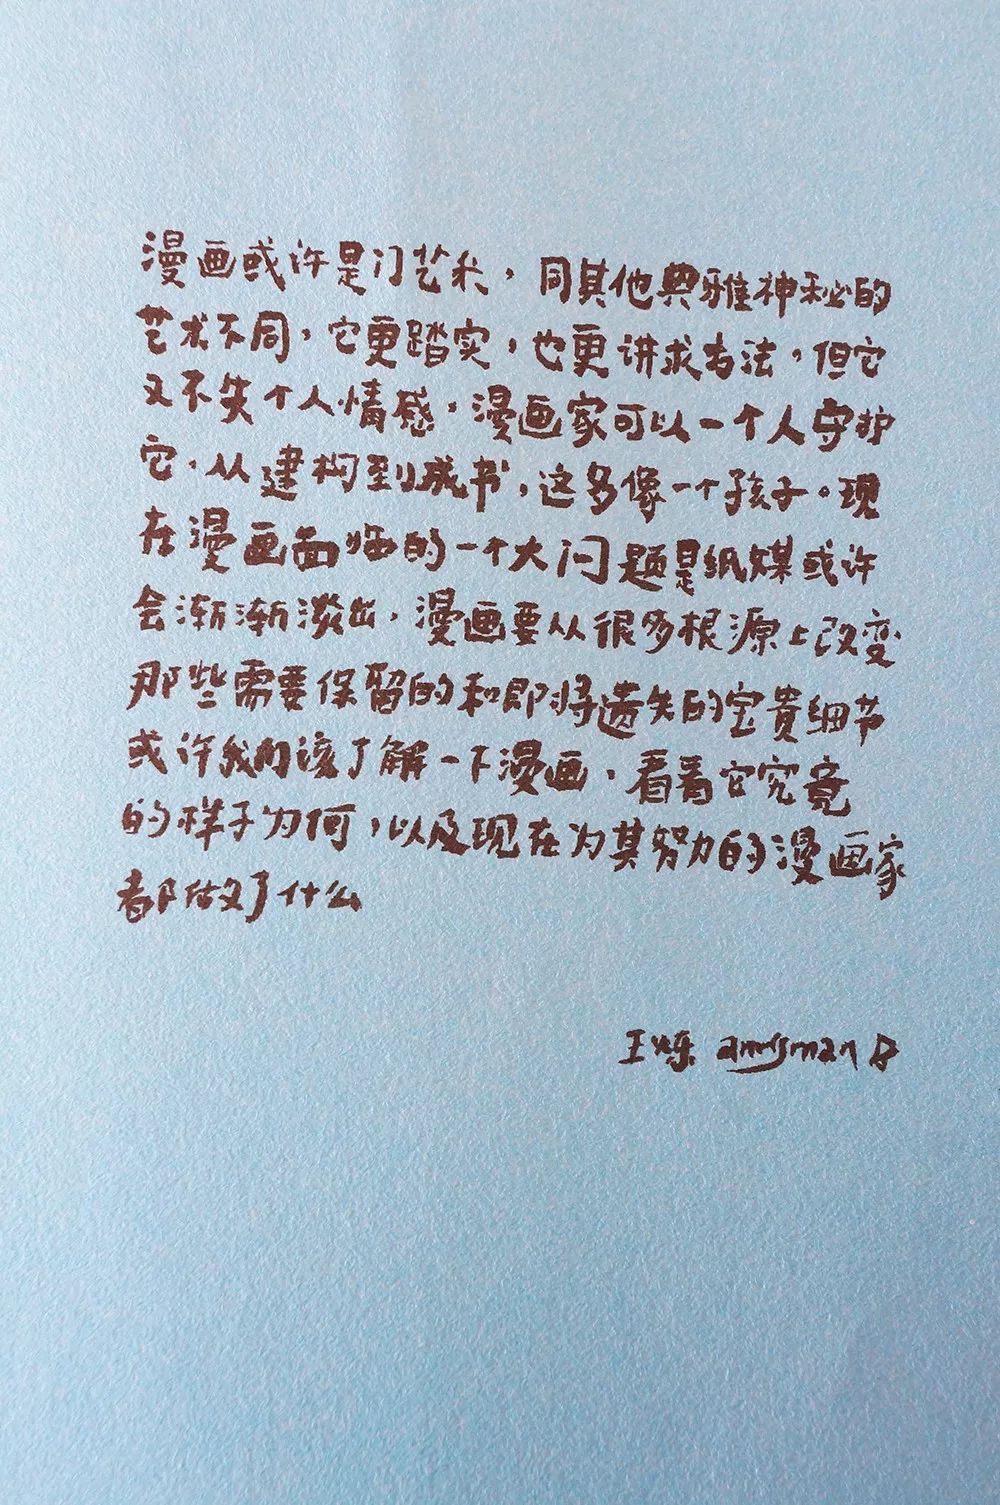 漫画或许是门艺术，同其他典雅神秘的
艺术不同，它更踏实，也更讲求方法，但它
又不失个人情感。漫画家可以一个人守护
它，从建构到成书，这多像一个孩子。现
在漫画面临的一个大问题是纸媒或许
会渐渐淡出，漫画要从很多根源上改变
那些需要保留的和即将遗失的宝贵细节
或许我们该了解一下漫画，看看它究竟
的样子为何，以及现在为其努力的漫画家
都做了什么
王烁